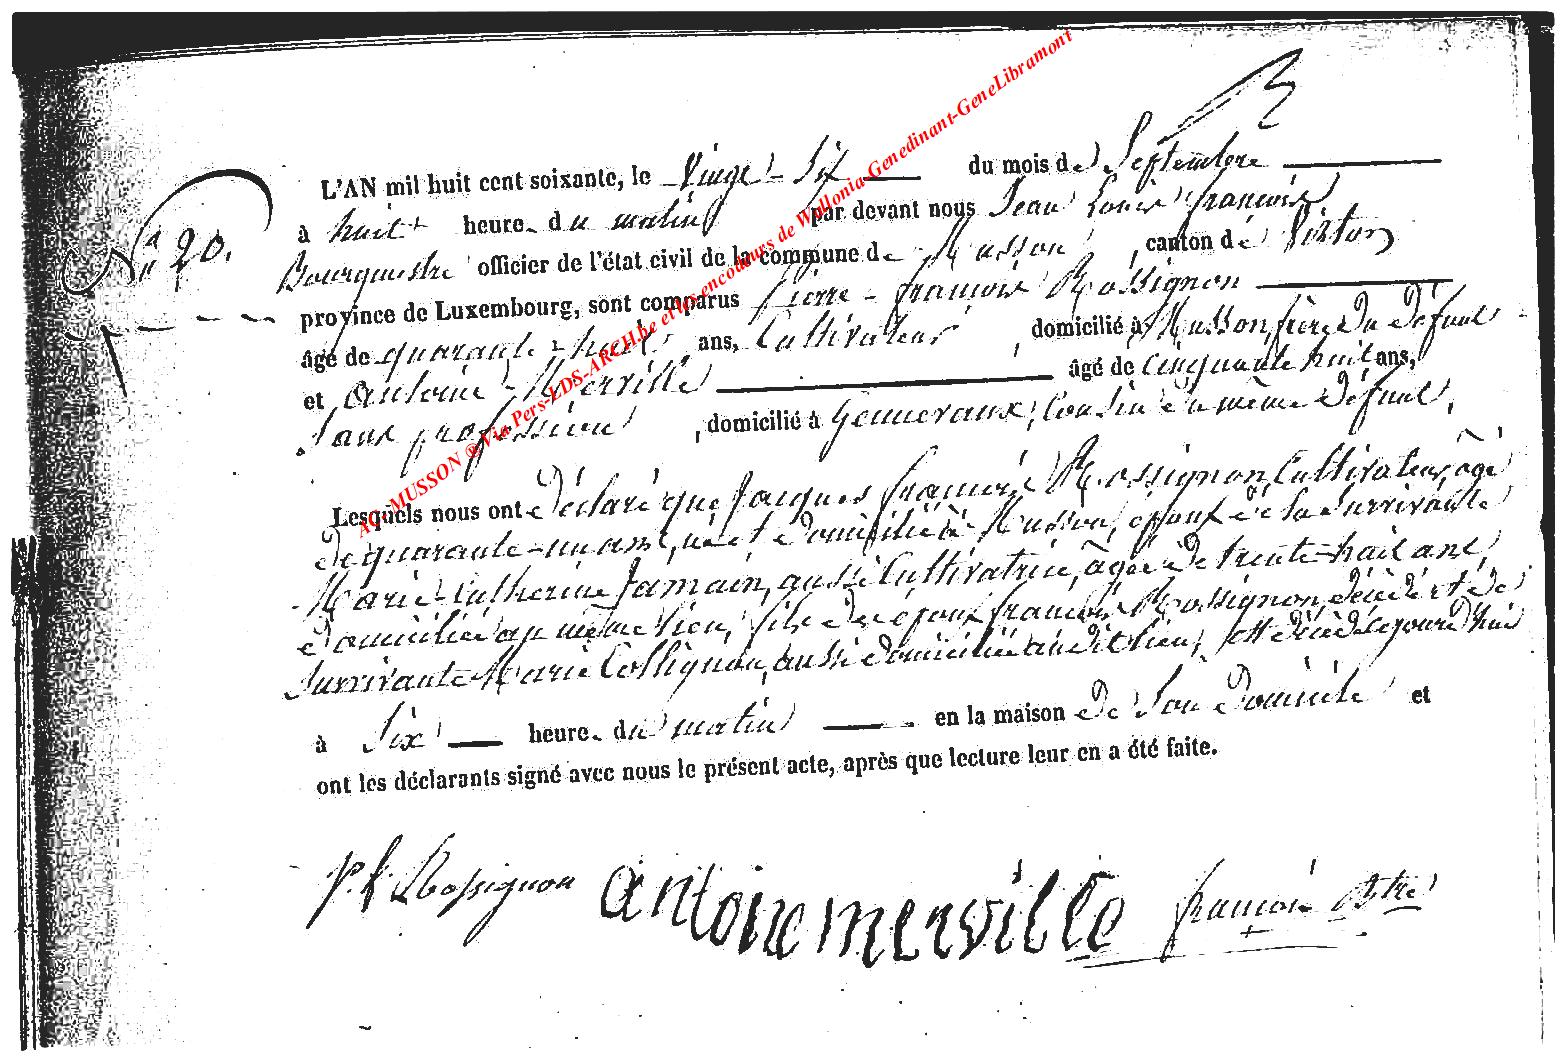 N° 20.
L'AN mil huit cent soixante, le Vingt-Six du mois de Septembre
à huit heures du matin par devant nous Jean Louis françois
Bourgmestre officier de l'état civil de la commune de Musson, canton de Virton
province de Luxembourg, sont comparus Pierre-françois Rossignon
âgé de quarante-huit ans, Cultivateur, domicilié à Musson, frère du défunt
et Antoine Merville âgé de cinquante huit ans,
Sans profession, domicilié à Gennevaux, Cousin du même défunt,
Lesquels nous ont déclaré que Jacques françois Rossignon, Cultivateur, âgé
de quarante-un ans, né et domicilié à Musson, époux de la Survivante
Marie-Catherine Jamain, aussi Cultivatrice, âgée de trente-huit ans,
domiciliée au même lieu, fils des époux françois Rossignon, décédé et de
Survivante Marie Collignon, aussi domiciliée audit lieu, est décédé cejourd'hui
à Six heures du matin en la maison de Son domicile et
ont les déclarants signé avec nous le présent acte, après que lecture leur en a été faite.
P. f. Rossignon antoine merville françois Bstre
AC-MUSSON @ Via Pers-LDS-ARCH.be et les encodeurs de Wallonia-Genedinant-GeneLibramont